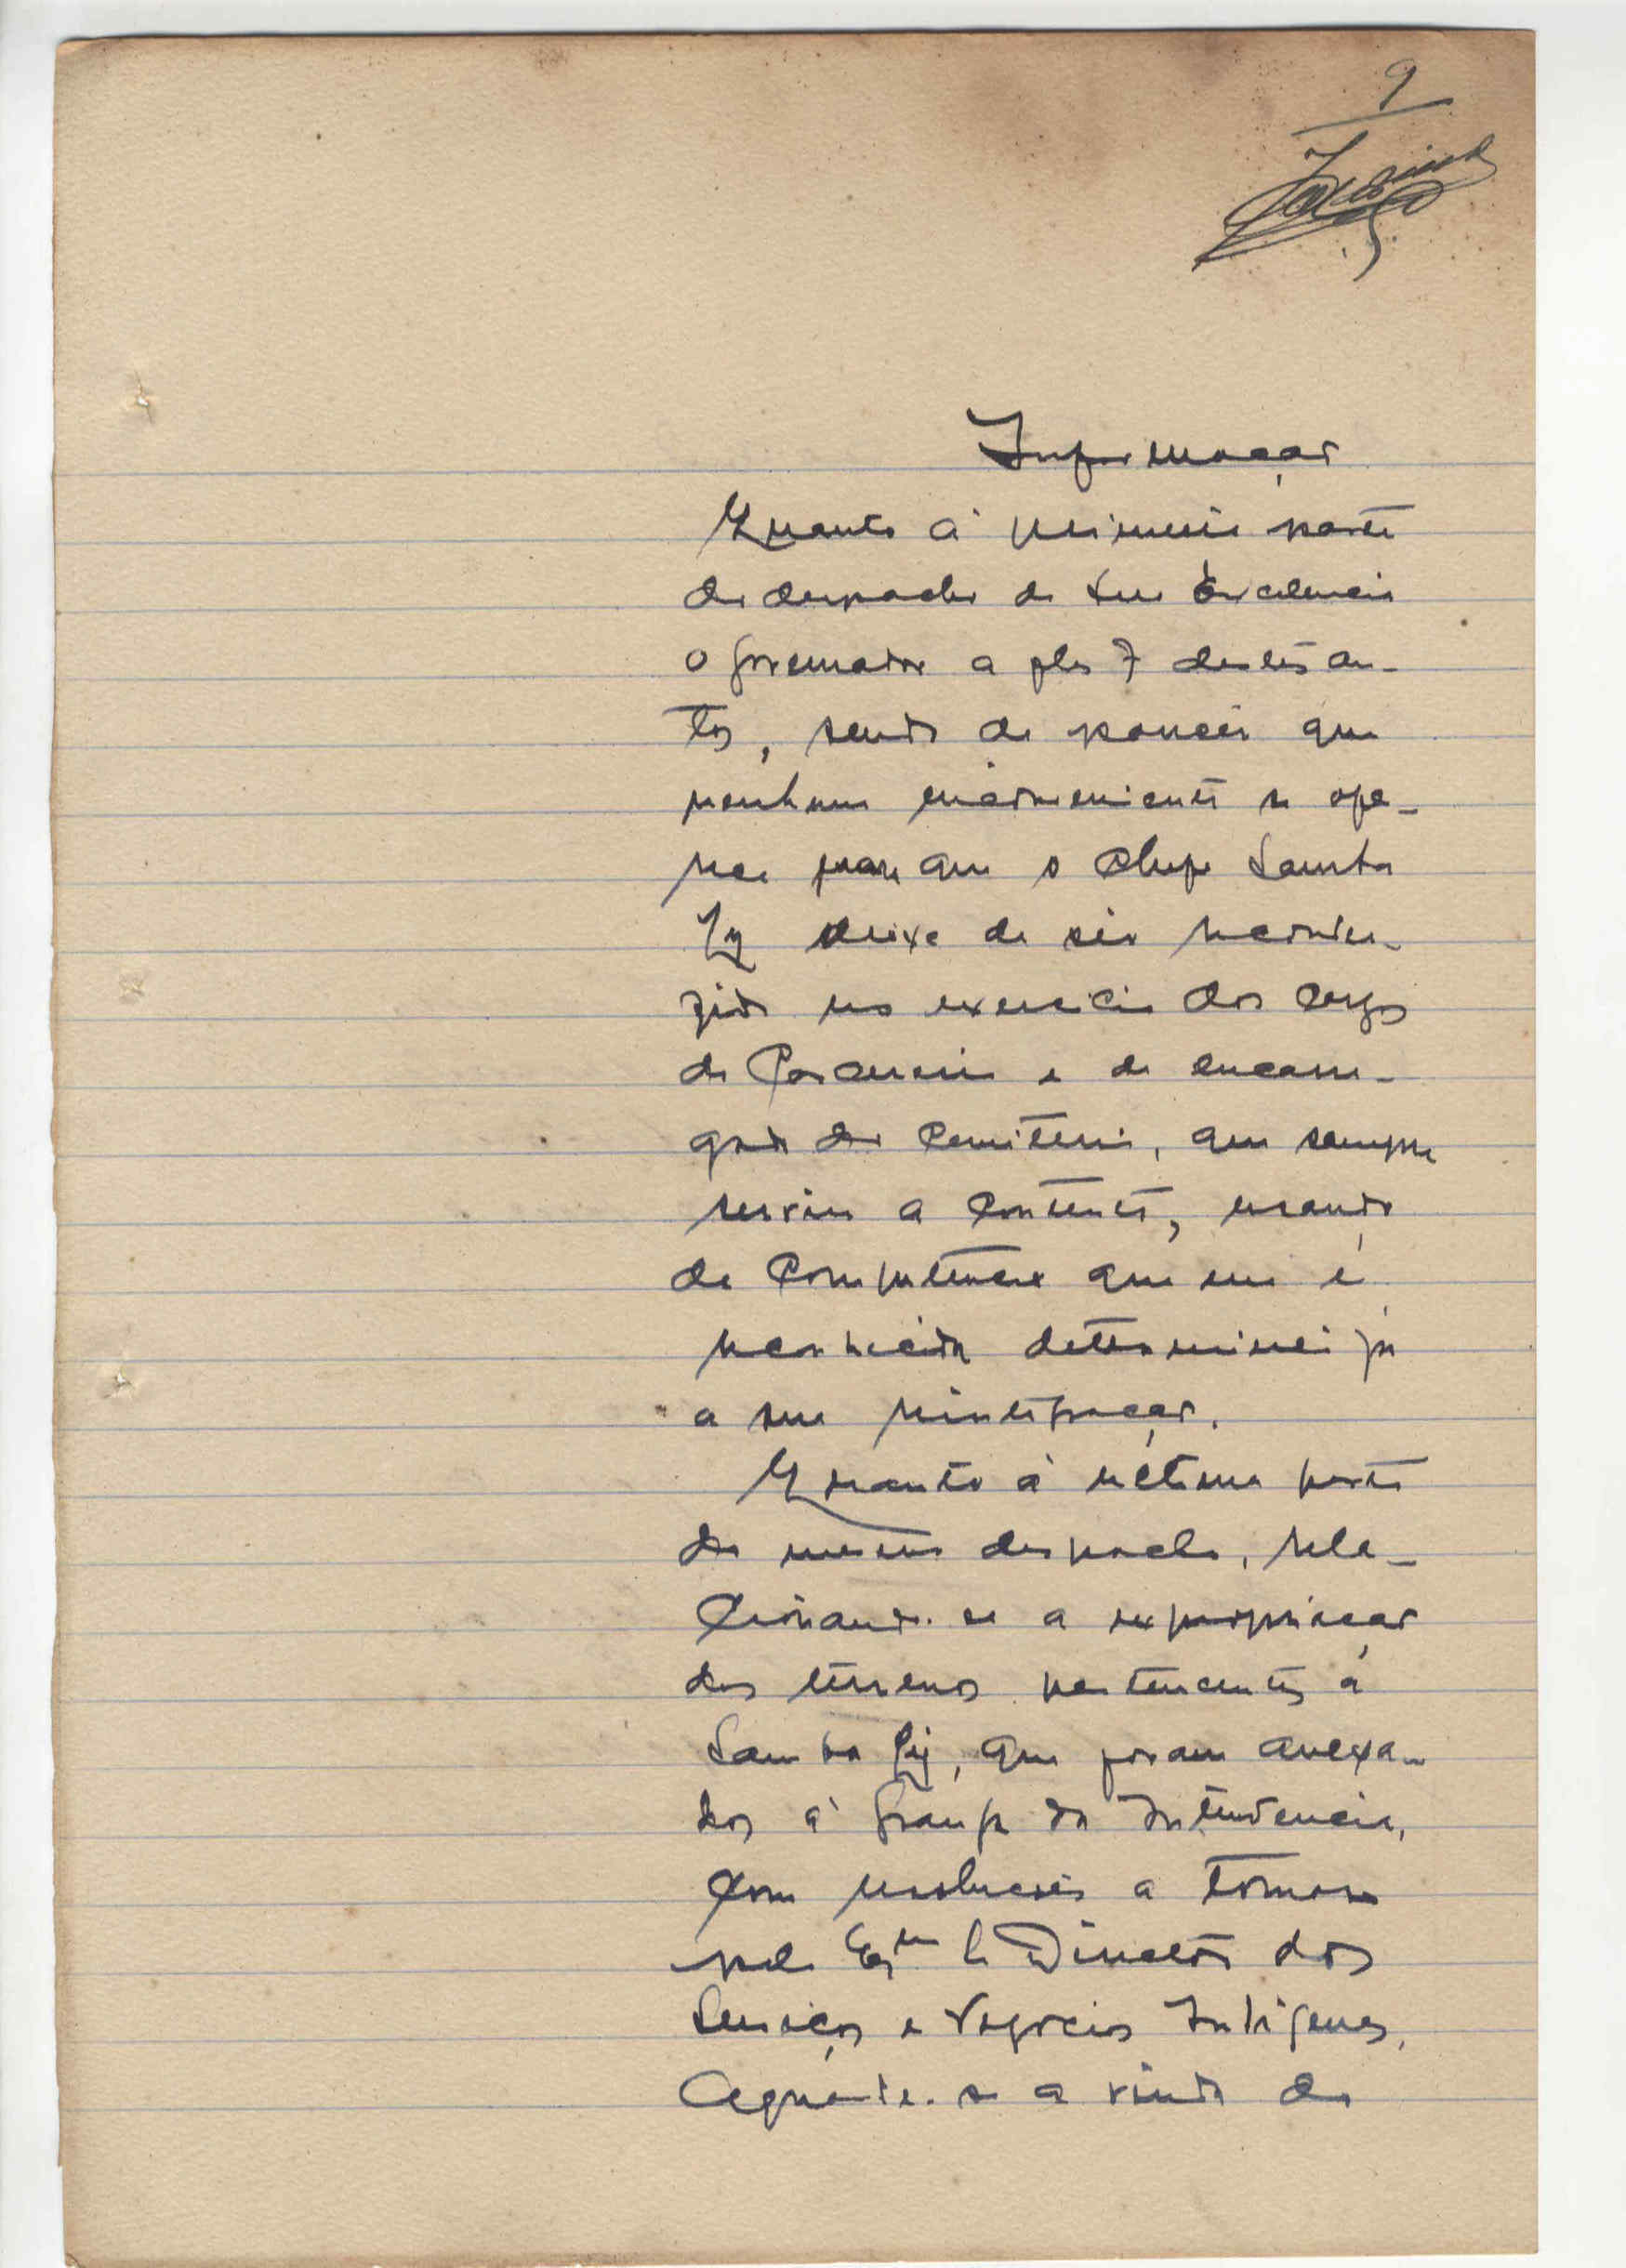 9
Informação
Quanto á primeira parte
do despacho de Sua Excelencia
o Governador a fls 7 destes au-
tos, sendo de parecer que
nenhum inconveniente se ope-
ra para que o Chefe Samba
Ly deixe de ser recondu-
zido no exercicio dos cargos
de e de encarre-
gado do Cemiterio, que sempre
serviu a contento, usando
da competencia que me é
reconhecida determinei já
a sua reintegração.
Quanto á ultima parte
do mesmo despacho, rela-
cionando-se a expropriação
dos terrenos pertencentes a
Samba Ly, que foram anexa-
dos á Granja da Intendencia,
com resoluções a tomar
pelo Exmo Sr Director dos
Serviços e Negocios Indigenas,
Aguarde-se a vinda do